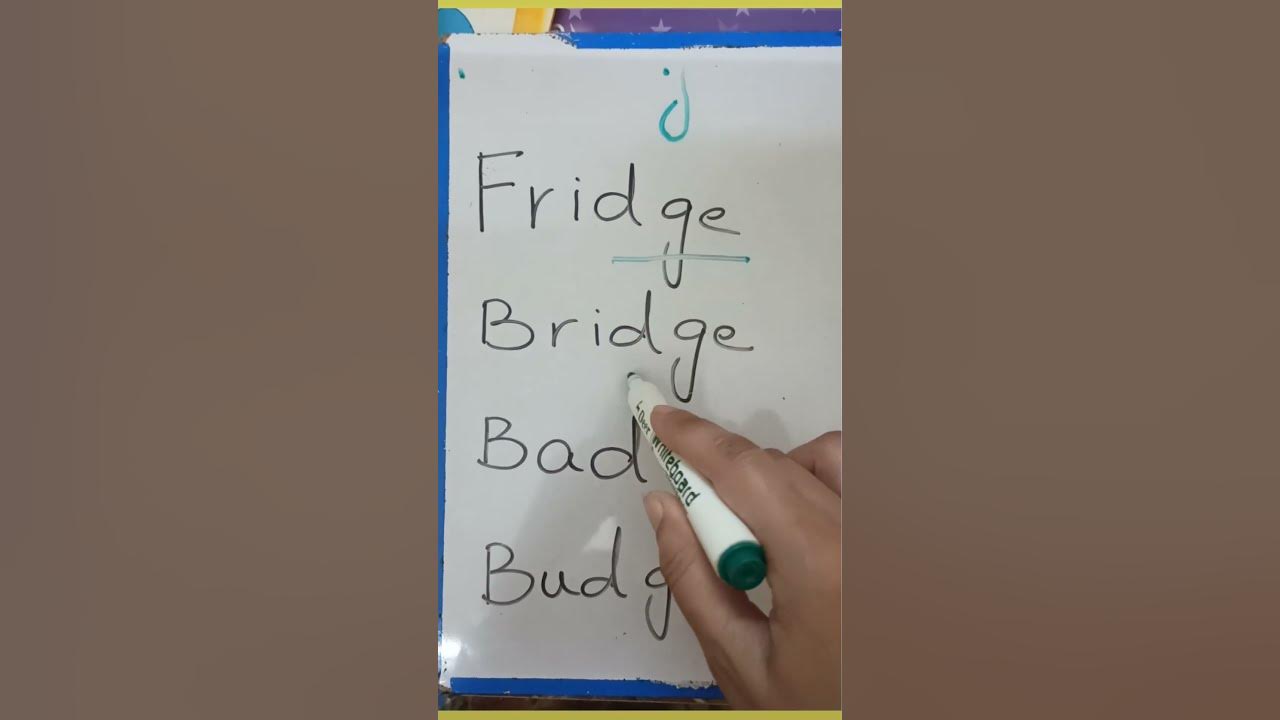 j
Fridge
Bridge
Bad
Budg
Whiteboard